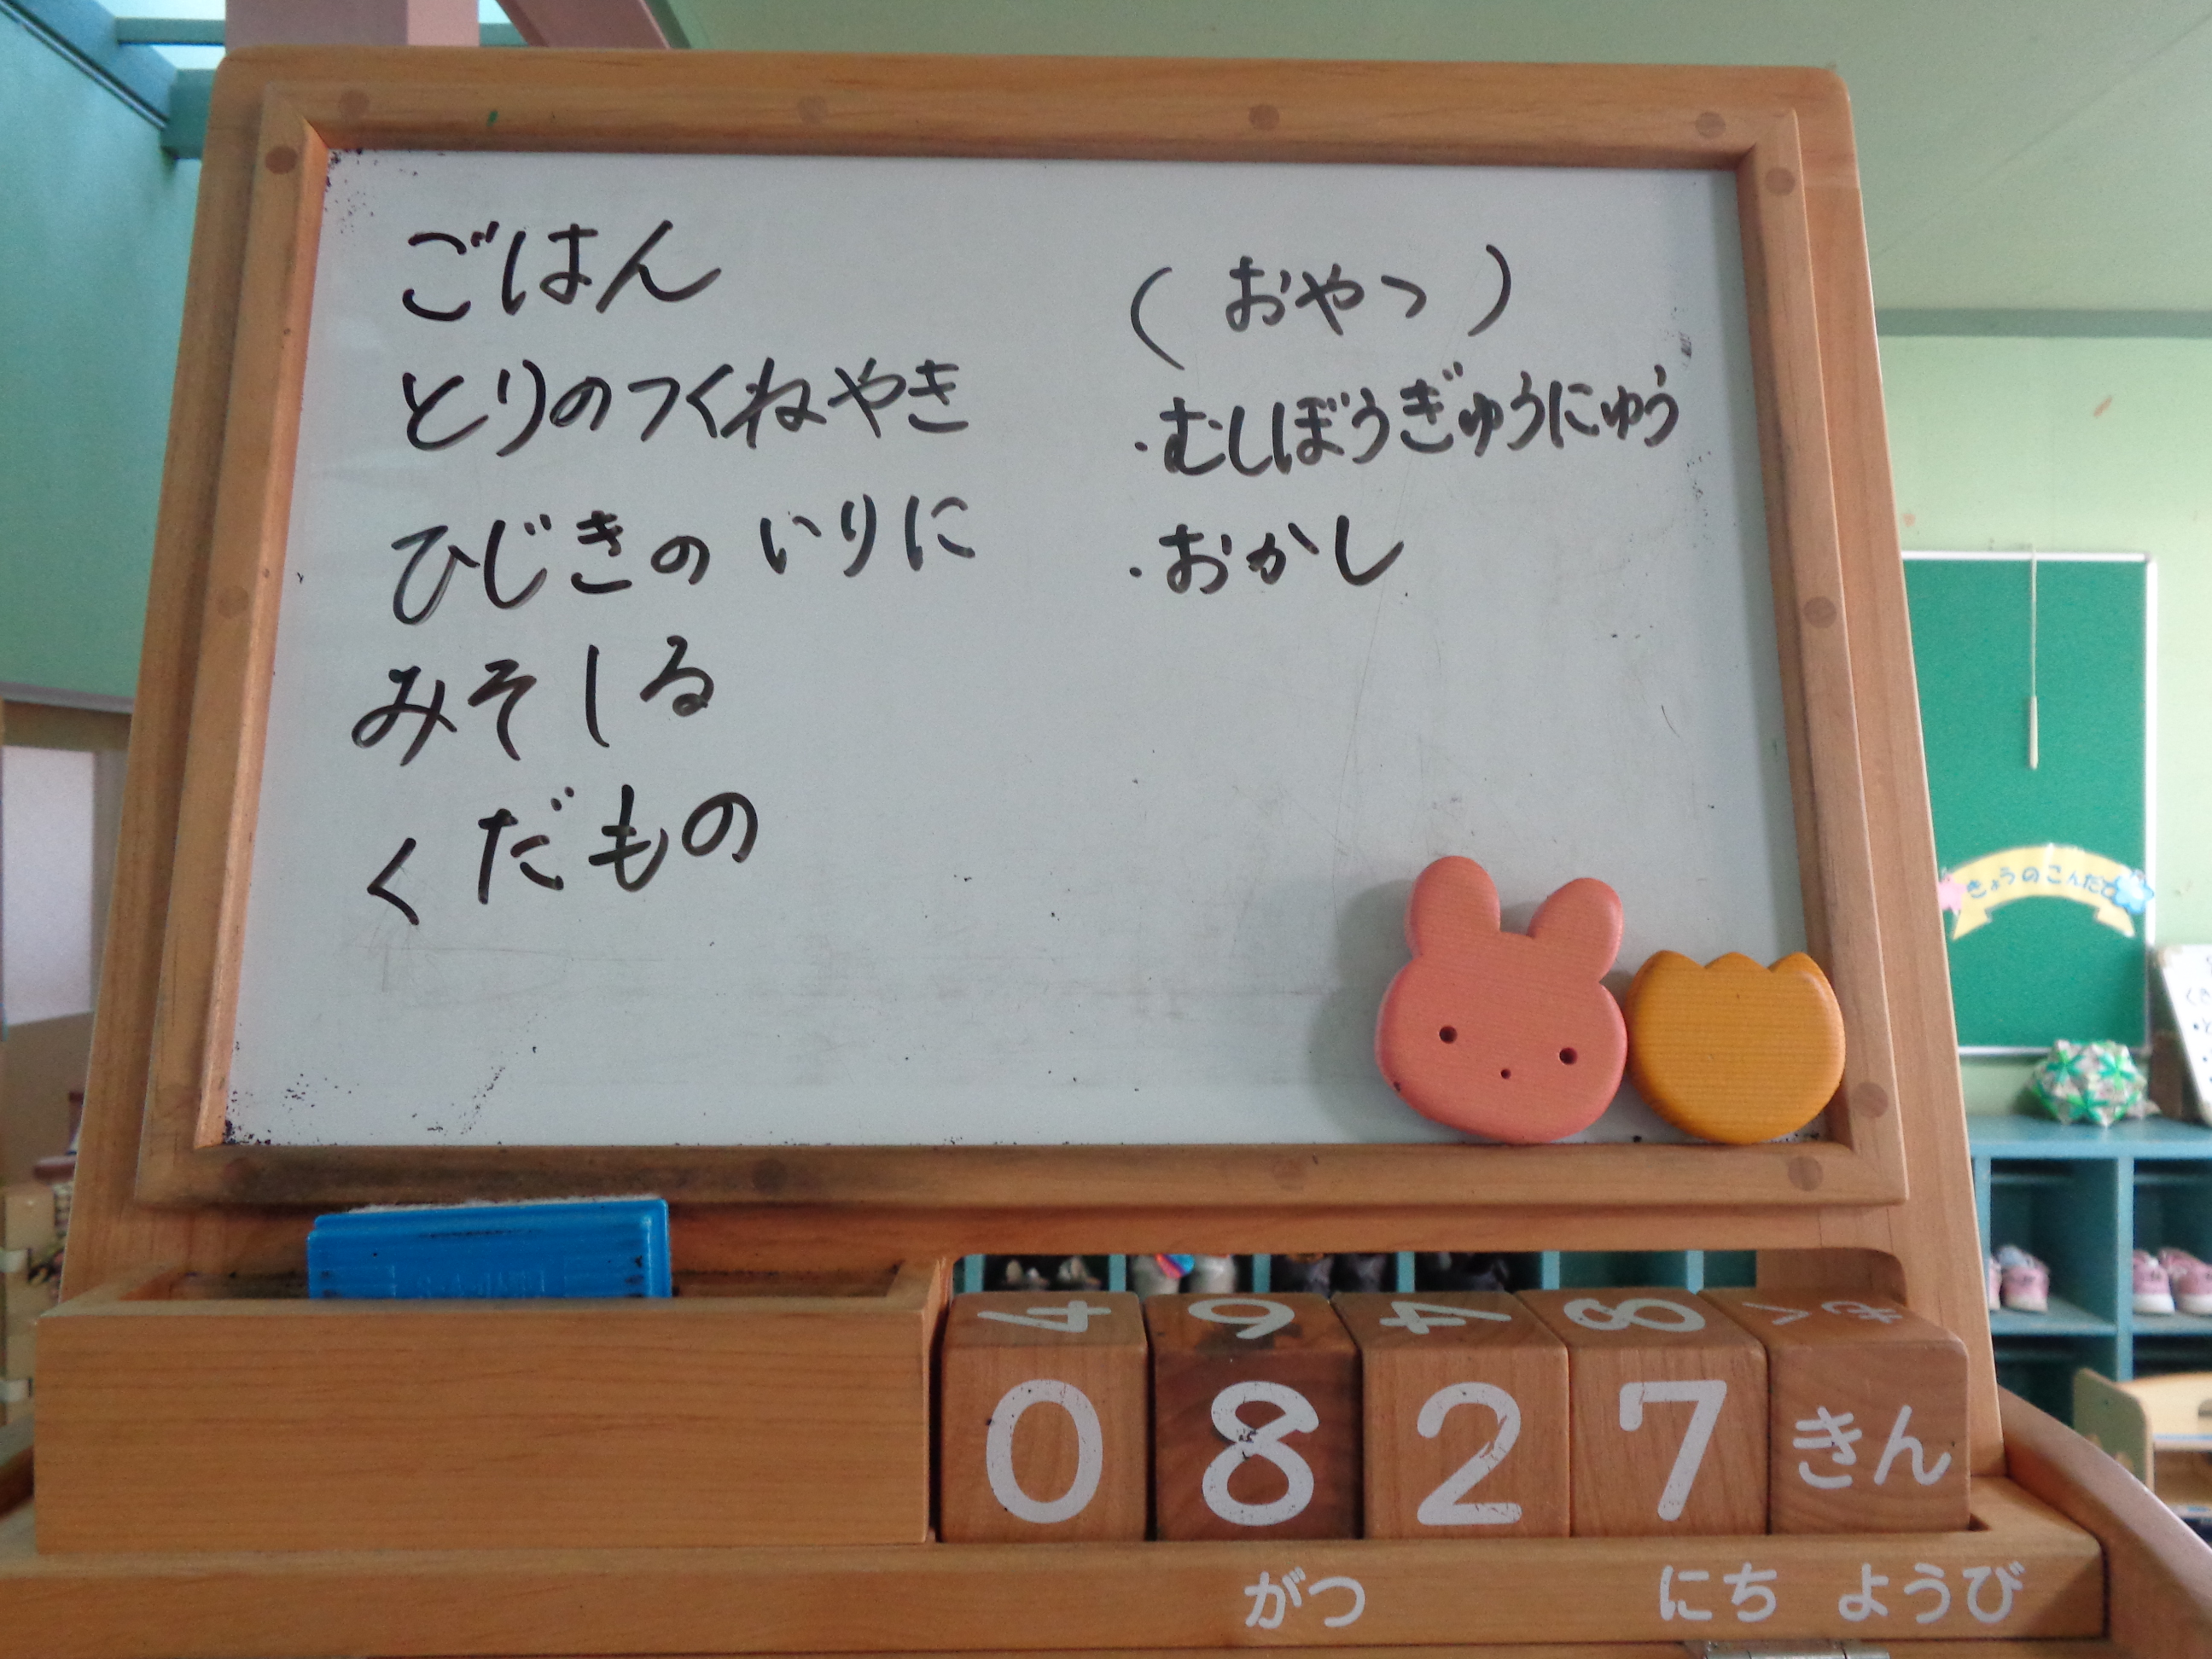 ごはん
とりのつくねやき
ひじきの いりに
みそしる
くだもの
( おやつ )
・むしぼうぎゅうにゅう
・おかし
きょうのこんだて
4 6 4 8
0 8 2 7 きん
がつ にち ようび